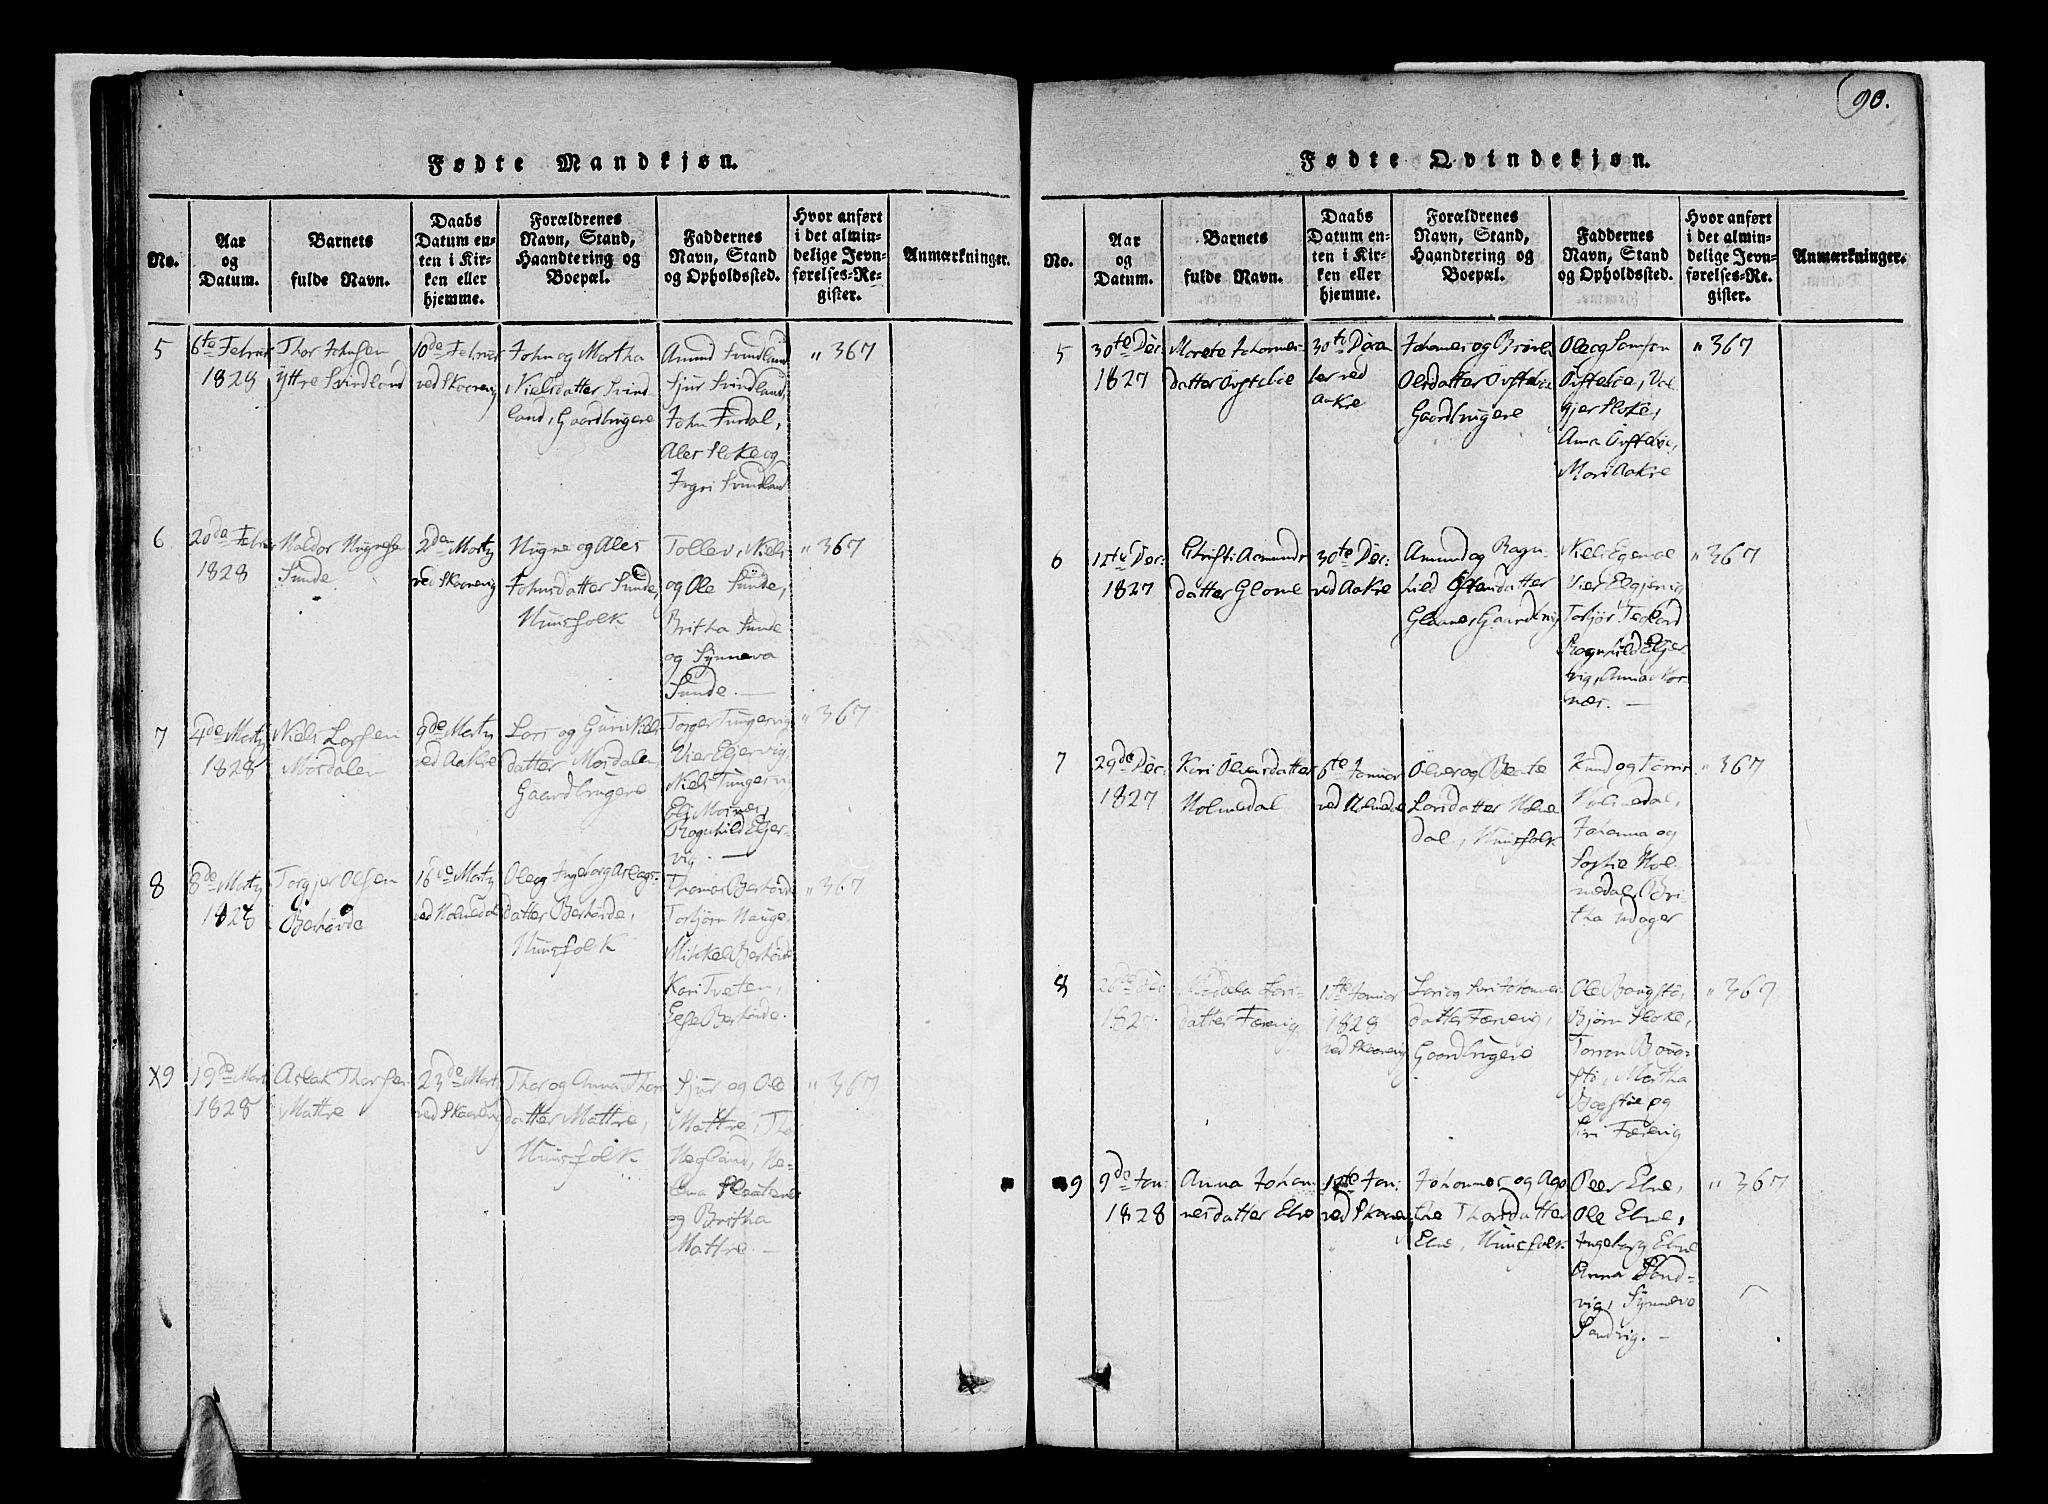 90.
Fødte Mandkjøn.
No.
Aar og Datum.
Barnets fulde Navn.
Daabs Datum enten i Kirken eller hjemme.
Forældrenes Navn, Stand, Haandtering og Boepæl.
Faddernes Navn, Stand og Opholdssted.
Hvor anført i det almindelige Jevnførelses-Register.
Anmærkninger.
5
6te Februar
1828
Thor Johnsen
Yttre Svindland
10de Februar
ved Skaanevig
John og Martha
Nielsdatter Svind
land, Gaardbrugere
Amund Svindland
Sjur Svindland,
John Fürdal,
Ales Floke og
Ingri Svindland
" 367
6
20de Febr
1828
Haldor
Sunde
2den Marty
ved Skaanevig
Hugne og Ales
Johnsdatter Sunde,
Huusfolk
Tollev, Niels
og Ole Sunde,
Britha Sunde
og Synneva
Sunde. —
" 367
7
4de Marty
1828
Niels Larsen
Mørdalen
9de Marty
ved Aakre
Lars og Guri Niels
datter Mørdalen,
Gaardbrugere
Torger Tungesvig
Vier Eljervig,
Niels Tungesv
Eli
Ragnhild Eljer-
vig. —
" 367
8
8de Marty
1828
Torgjer Olsen
Berhovde
16de Marty
ved Holmedal
Ole og Ingeborg Aslags-
datter Berhovde,
Huusfolk
Thomas Berhovde
Torbjørn Hauge,
Mikkel Berhovde
Kari Tveten,
Else Berhovde.
" 367
X9
19de Mart
1828
Aslak Thorsen
Mattre
23de Mart
ved Skaanev
Thor og Anna Thors
datter Mattre,
Huusfolk
Sjur og Ole
Mattre, Tho
Hegland, He-
lena
og Britha
Mattre —
" 367
Fødte Qvindekjøn.
No.
Aar og Datum.
Barnets fulde Navn.
Daabs Datum enten i Kirken eller hjemme.
Forældrenes Navn, Stand, Haandtering og Boepæl.
Faddernes Navn, Stand og Opholdssted.
Hvor anført i det almindelige Jevnførelses-Register.
Anmærkninger.
5
30te Dec:
1827
Marete Johannes-
datter Øvstebøe
30te Decem
ber ved
Aakre
Johannes og
Olsdatter Øvstebøe
Gaardbrugere
Ole og Samson
Øvstebøe, Val
gjer Floke,
Anna Øvstebøe,
Mari Aakre
" 367
6
Dec:
1827
Christi Aamunds
datter Glome
30te Dec:
ved Aakre
Amund og Ragn-
hild
Torbjør
Ragnhild Eljer-
vig, Anna Kor-
nes. —
" 367
7
29de Dec.
1827
Kari Olversdatter
Holmedal
6te Januar
ved Holmedal
Olver og Beate
Larsdatter Holme
dal, Huusfolk
Knud og
Holmedal,
Johanna og
Sophie Hol-
medal, Bri-
tha Udager
" 367
8
26de Dec
1827
Lars-
datter Færevig
1ste Januar
1828
ved Skaanevig
Lars og Siri Johannes-
datter Færevig,
Gaardbrugere
Ole
Bjørn Floke,
Martha
og
Siri Færevig
" 367
9
9de Jan:
1828
Anna Johan
nesdatter Elne
Jan:
ved Skaanev
Johannes og Aga
the Thorsdatter
Elne, Huusfolk
Peer Elne,
Ole Elne,
Ingeborg Elne
Anna Sand-
vig, Synneva
Sandvig. —
" 367